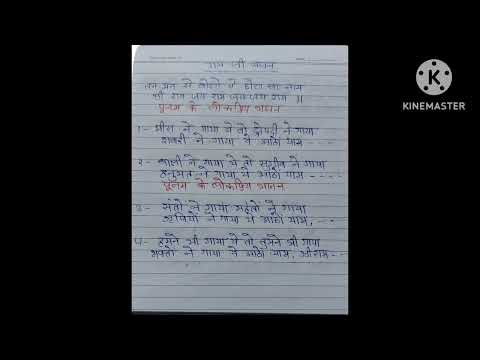 राम जी भजन
तन मन से बोलो ये
श्री राम जय राम जय जय राम ॥
पूनम के लोकप्रिय भजन
1- मीरा ने गाया ये तो द्रोपदी ने गाया
शबरी ने गाया ये आठो याम - - - -
२- बाली ने गाया ये तो सुग्रीव ने गाया
हनुमत ने गाया ये आठो याम - - - -
पूनम के लोकप्रिय भजन
3- संतो ने गाया महंतो ने गाया
ऋषियों ने गाया ये आठो याम, - - -
4- हमने भी गाया ये तो तुमने भी गाया
भक्तो ने गाया ये आठो याम, श्रीराम - -
KINEMASTER